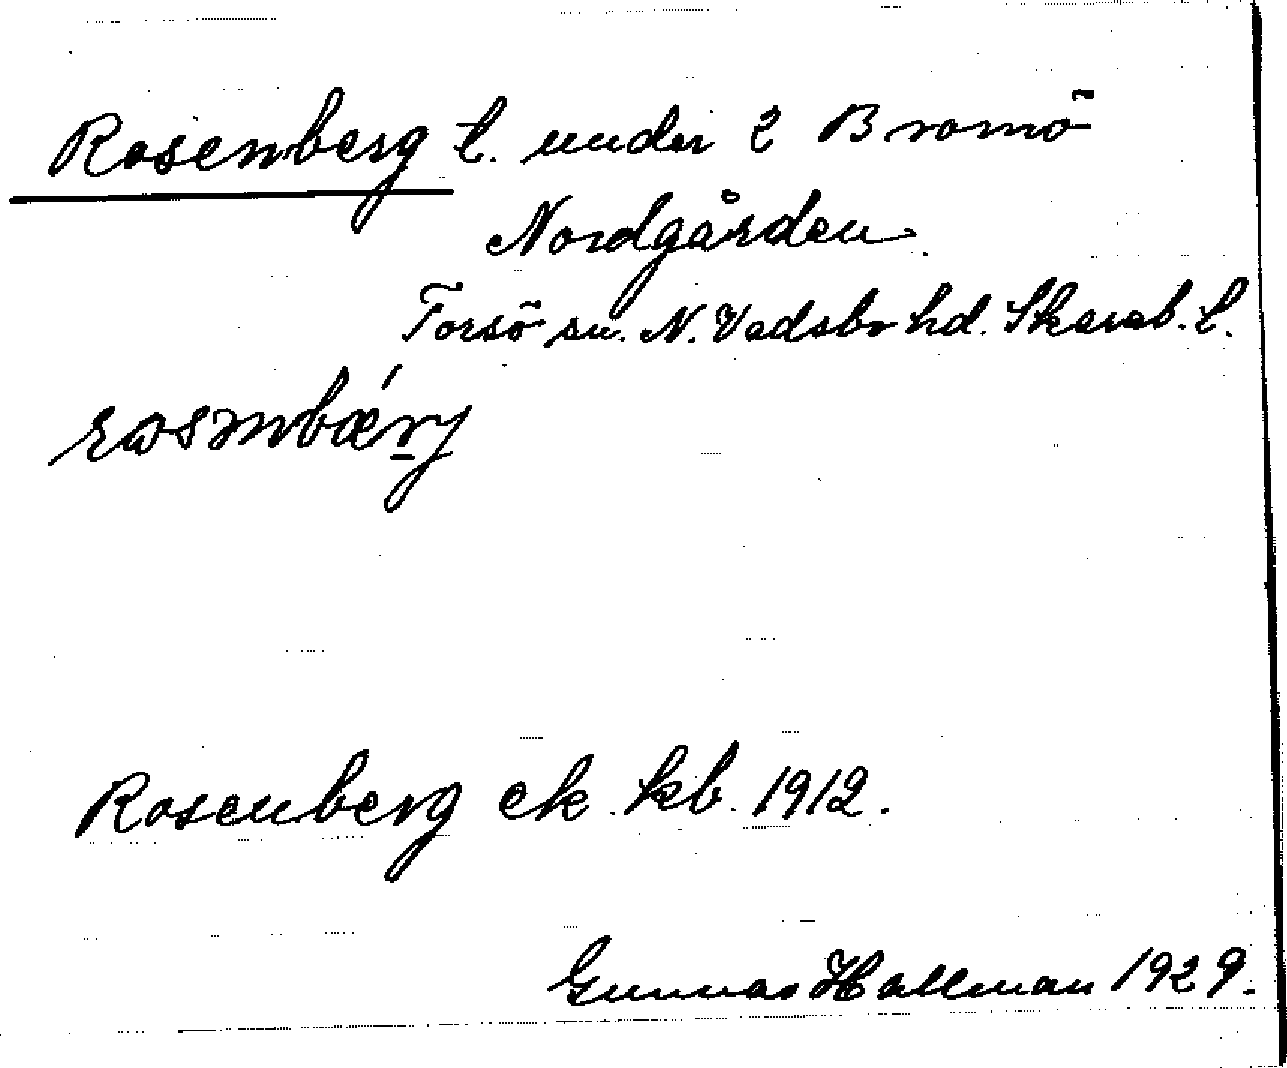 Rosenberg t. under 2 Bromö
Nordgården
Torsö sn. N. Vadsbo hd. Skarab. l.
Rosenberg ek. kb. 1912.
Gunnar Hallman 1929.